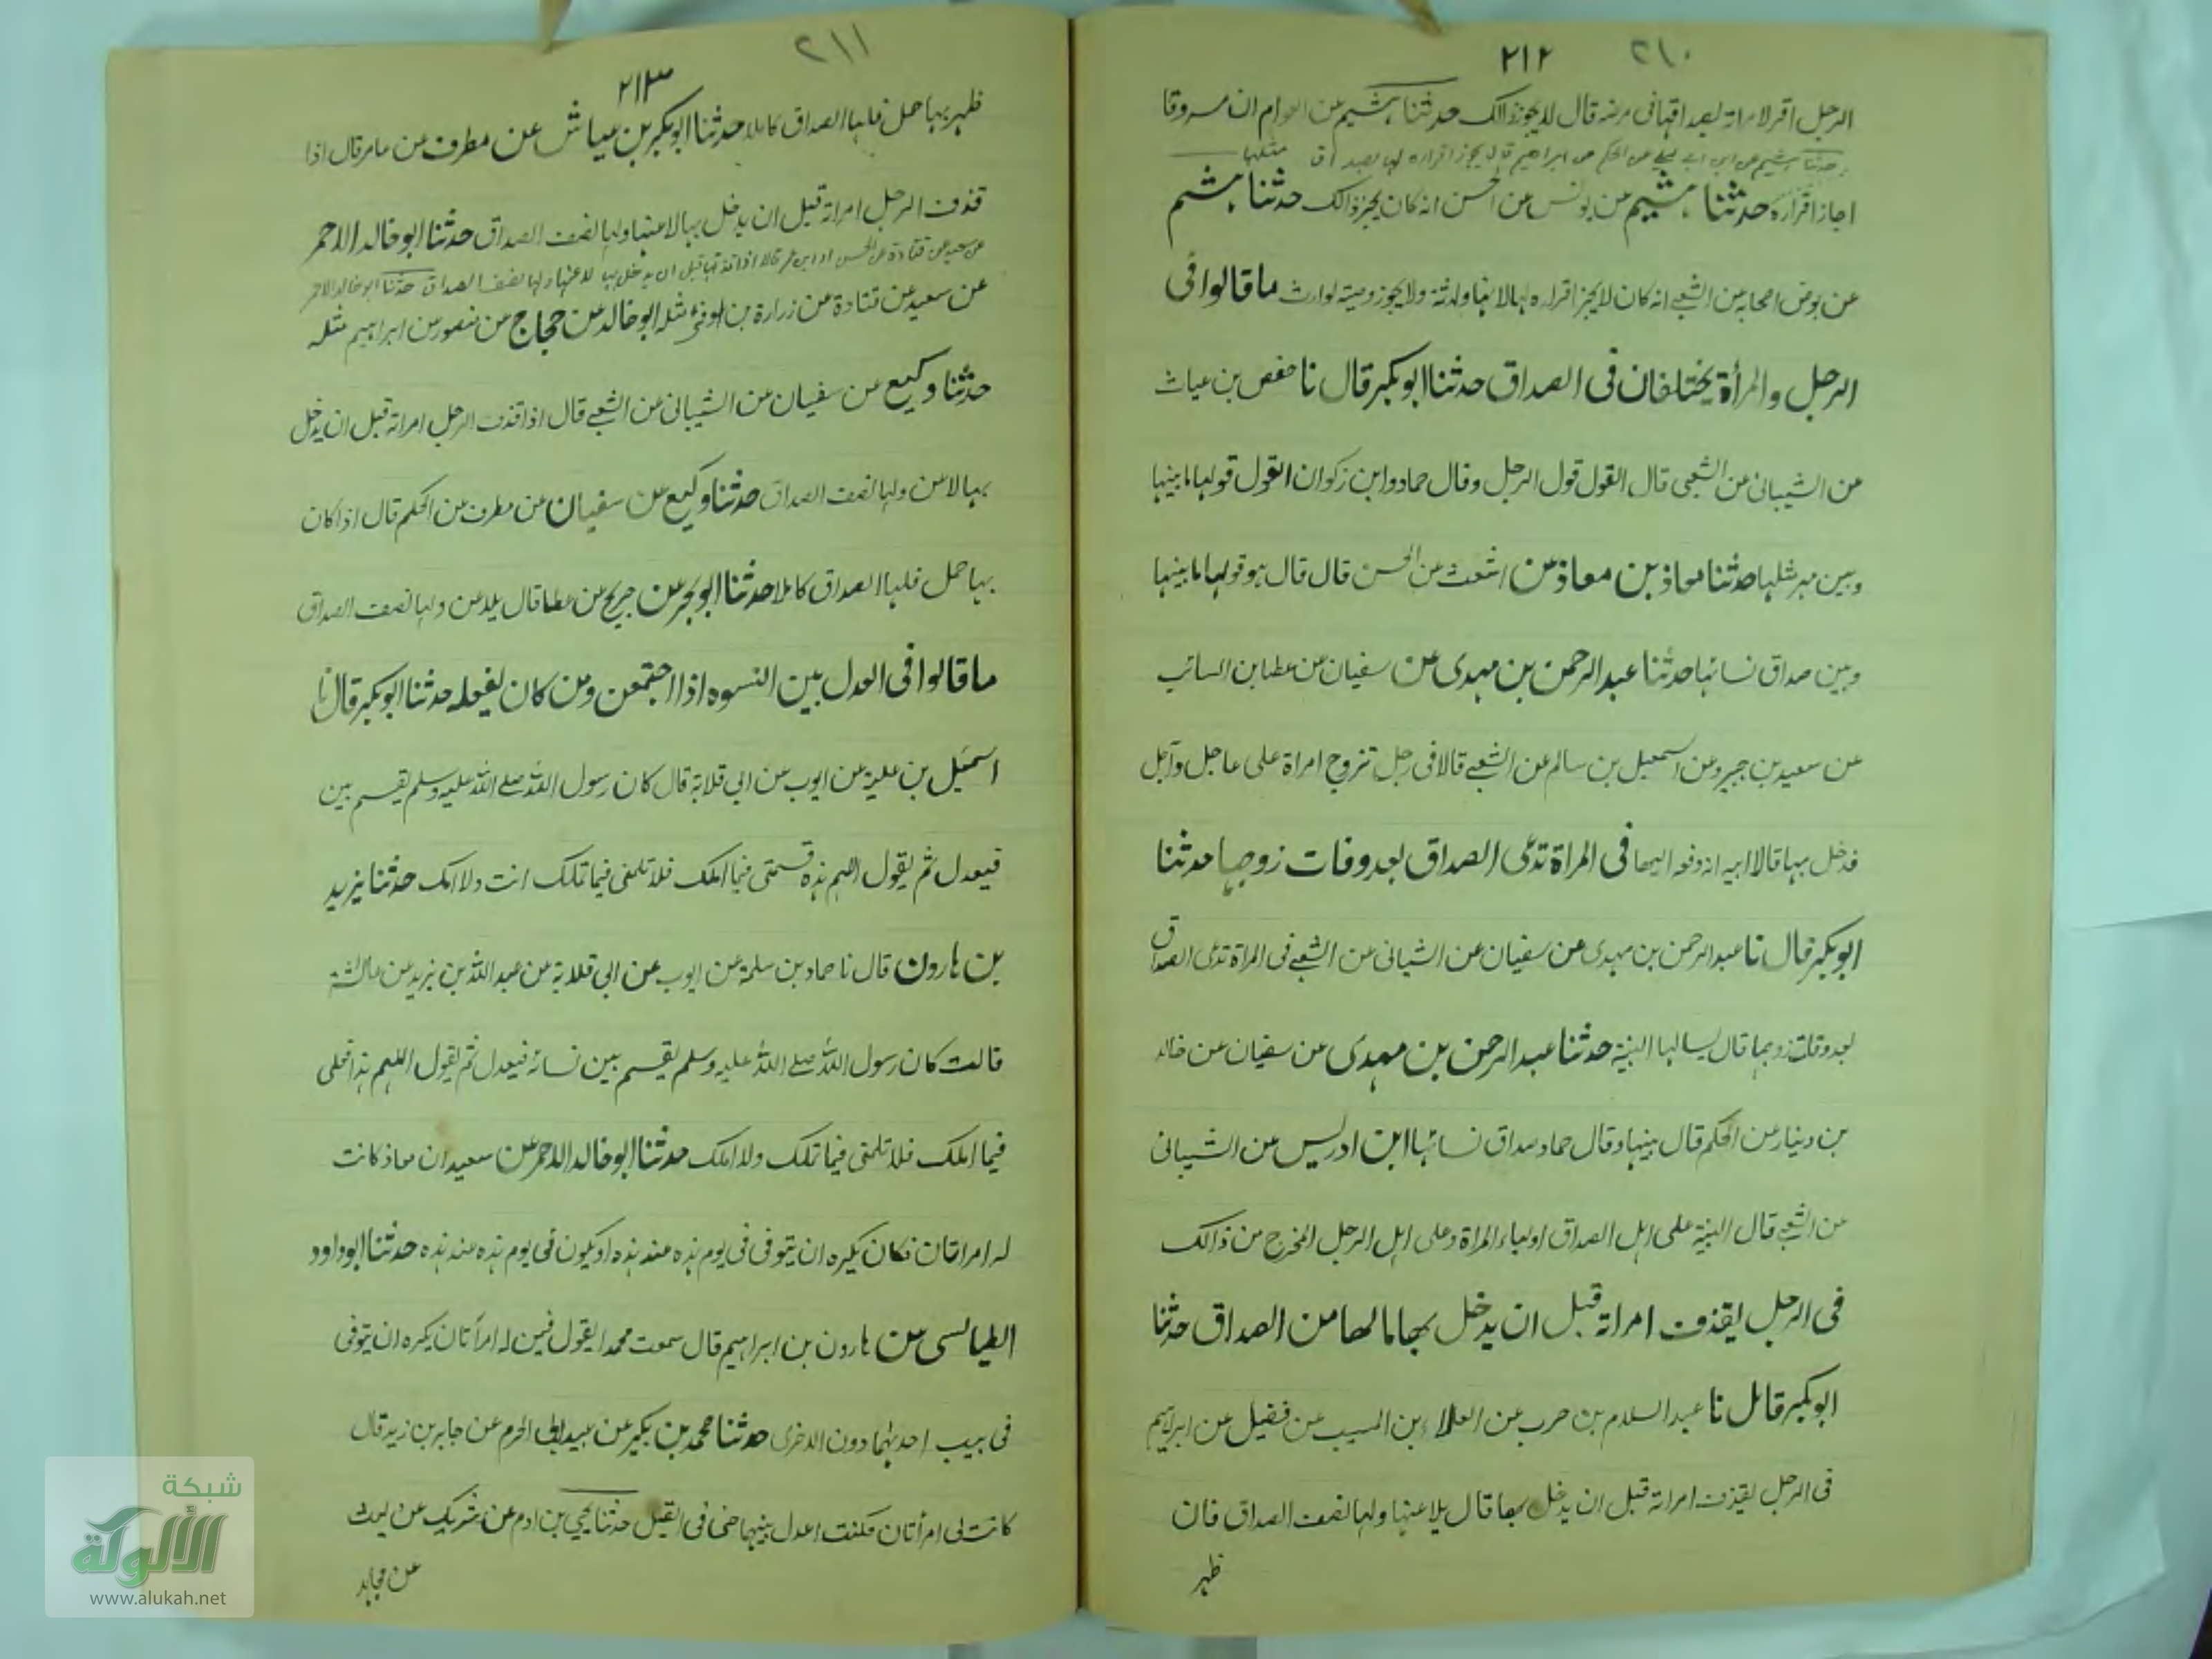 ٢١٠
٢١٢
الرجل اقر لامراته بصداقها فى مرضه قال لا يجوز ذالك حدثنا هشيم عن العوام ان مسروقا
حدثنا هشيم عن ابن ابى ليلى عن الحكم عن ابراهيم قال يجوز اقراره لها بصداق مثلها
اجاز اقراره حدثنا هشيم عن يونس عن الحسن انه كان يجيز ذالك حدثنا هشيم
عن بعض اصحابه عن الشعبى انه كان لا يجيز اقراره لها لانها وارثة ولا يجوز وصيته لوارث ما قالوا فى
الرجل والمرأة يختلفان فى الصداق حدثنا ابو بكر قال نا حفص بن غياث
عن الشيبانى عن الشعبى قال القول قول الرجل وقال حماد وابن زكوان القول قولها ما بينها
وبين مهر مثلها حدثنا معاذ بن معاذ عن اشعث عن الحسن قال قال هو قولها ما بينها
وبين صداق نسائها حدثنا عبد الرحمن بن مهدى عن سفيان عن عطا بن السائب
عن سعيد بن جبير وعن اسمعيل بن سالم عن الشعبى قالا فى رجل تزوج امراة على عاجل وآجل
فدخل بها قالا البينة انه دفعه اليها فى المراة تدعى الصداق بعد وفات زوجها حدثنا
ابو بكر قال نا عبد الرحمن بن مهدى عن سفيان عن الشيبانى عن الشعبى فى المراة تدعى الصداق
بعد وفات زوجها قال يسالها البنية حدثنا عبد الرحمن بن مهدى عن سفيان عن خالد
بن دينار عن الحكم قال بينها وقال حماد صداق نسائها ابن ادريس عن الشيبانى
عن الشعبى قال البنية على اهل الصداق اولياء المراة وعلى اهل الرجل المخرج من ذالك
فى الرجل يقذف امراته قبل ان يدخل بها ما لها من الصداق حدثنا
ابو بكر قال نا عبد السلام بن حرب عن العلاء بن المسيب عن فضيل عن ابراهيم
فى الرجل يقذف امراته قبل ان يدخل بها قال يلاعنها ولها نصف الصداق فان
ظهر
٢١١
٢١٣
ظهر بها حمل فلها الصداق كاملا حدثنا ابو بكر بن عياش عن مطرف عن عامر قال اذا
قذف الرجل امراته قبل ان يدخل بها لاعنها ولها نصف الصداق حدثنا ابو خالد الاحمر
عن سعيد عن قتادة عن الحسن قالا اذا قذفها قبل ان يدخل بها لاعنها ولها نصف الصداق حدثنا ابو خالد الاحمر
عن سعيد عن قتادة عن زرارة بن اوفى مثله ابو خالد عن حجاج عن منصور عن ابراهيم مثله
حدثنا وكيع عن سفيان عن الشيبانى عن الشعبى قال اذا قذف الرجل امراته قبل ان يدخل
بها لاعن ولها نصف الصداق حدثنا وكيع عن سفيان عن مطرف عن الحكم قال اذا كان
بها حمل فلها الصداق كاملا حدثنا ابو بحر عن جريج عن عطا قال يلاعن ولها نصف الصداق
ما قالوا فى العدل بين النسوه اذا اجتمعن ومن كان يفعله حدثنا ابو بكر قال نا
اسمعيل بن علية عن ايوب عن ابى قلابة قال كان رسول الله صلى الله عليه وسلم يقسم بين
فيعدل ثم يقول اللهم هذه قسمتى فيما املك فلا تلمنى فيما تملك انت ولا املك حدثنا يزيد
بن هارون قال نا حماد بن سلمة عن ايوب عن ابى قلابة عن عبد الله بن يزيد عن عائشة
قالت كان رسول الله صلى الله عليه وسلم يقسم بين نسائه فيعدل ثم يقول اللهم هذا فعلى
فيما املك فلا تلمنى فيما تملك ولا املك حدثنا ابو خالد الاحمر عن سعيد ان معاذ كانت
له امراتان فكان يكره ان يتوفى فى يوم هذه عند هذه او يكون فى يوم هذه عند هذه حدثنا ابو داود
الطيالسى عن هارون بن ابراهيم قال سمعت محمدا يقول فيمن له امرأتان يكره ان يتوفى
فى بيت احديهما دون الاخرى حدثنا محمد بن بكير عن عبيد ابى الحرم عن جابر بن زيد قال
كانت لى امرأتان فكنت اعدل بينهما حتى فى القبل حدثنا يحيى بن ادم عن شريك عن ليث
عن مجاهد
شبكة
الألوكة
www.alukah.net